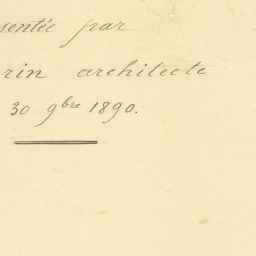 sentée par
rin architecte
30 9bre 1890.